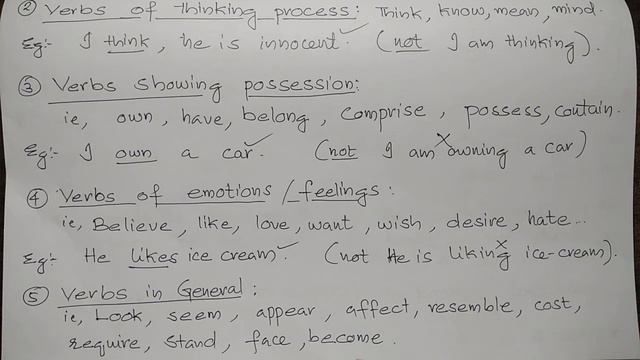 ② Verbs of thinking process: Think, know, mean, mind.
Eg:- I think, he is innocent ✓ (not I am thinking).
③ Verbs showing possession:
ie, own, have, belong, comprise, possess, contain.
Eg:- I own a car ✓. (not I am owning a car)
④ Verbs of emotions / feelings:
ie, Believe, like, love, want, wish, desire, hate...
Eg:- He likes ice cream ✓. (not He is liking ice-cream).
⑤ Verbs in General:
ie, Look, seem, appear, affect, resemble, cost,
require, stand, face, become.